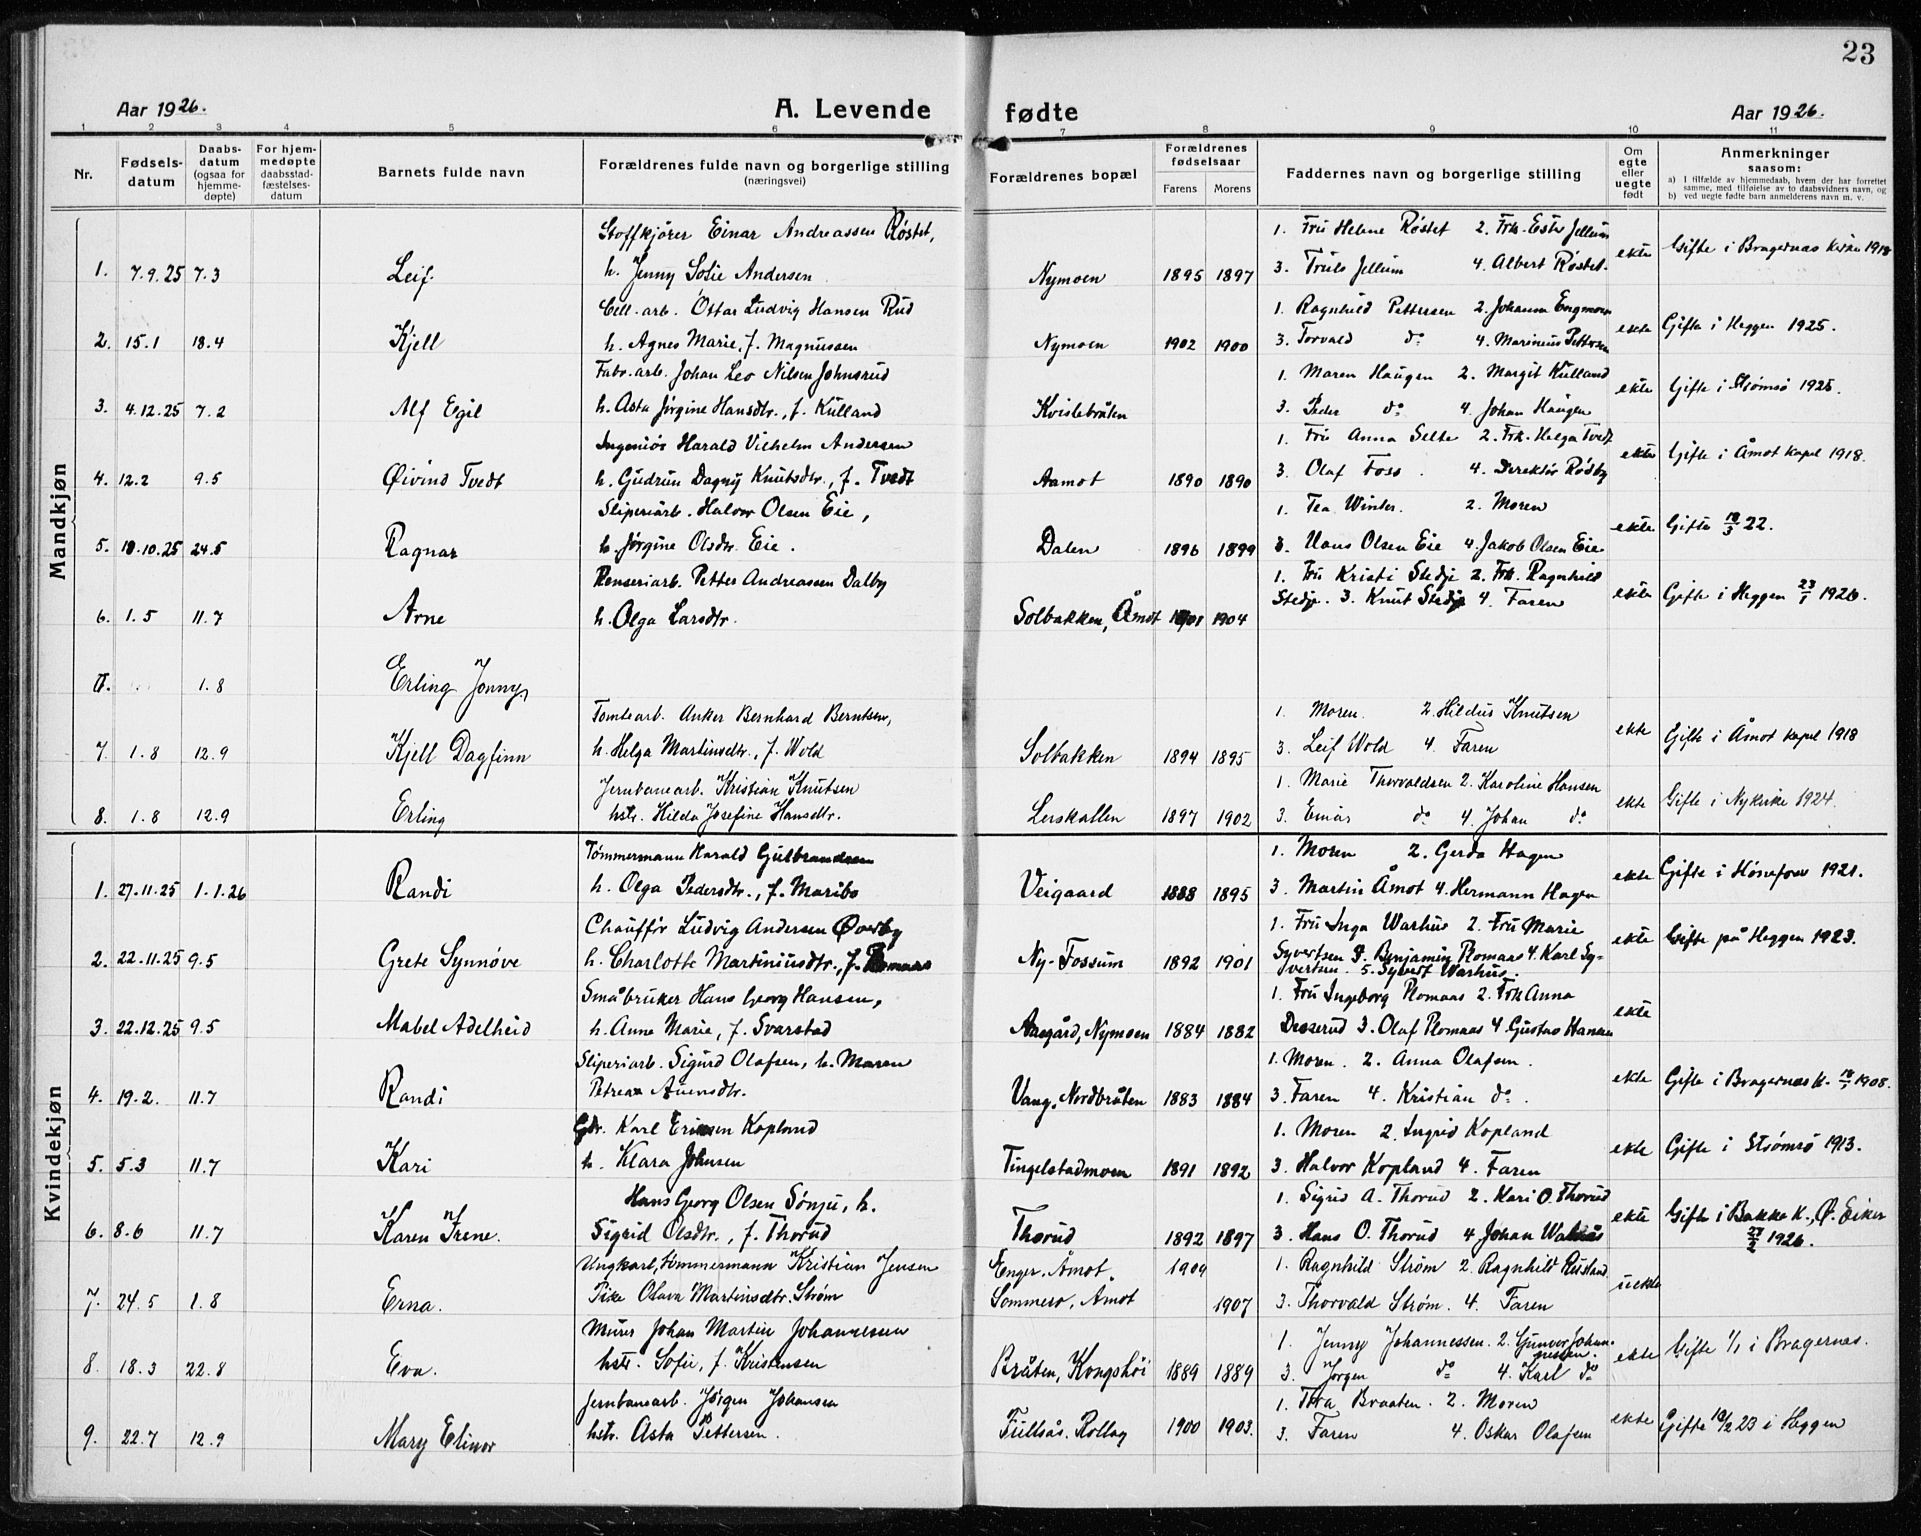 23
Aar 1926.
A. Levende fødte
Aar 1926.
1 2 3 4 5 6 7 8 9 10 11
Nr.
Fødsels-datum
Daabs-datum (ogsaa for hjemme-døpte)
For hjem-medøpte daabsstad-fæstelses-datum
Barnets fulde navn
Forældrenes fulde navn og borgerlige stilling (næringsvei)
Forældrenes bopæl
Forældrenes fødselsaar
Farens Morens
Faddernes navn og borgerlige stilling
Om egte eller uegte født
Anmerkninger saasom:
a) I tilfælde av hjemmedaab, hvem der har forrettet samme, med tilføielse av to daabsvidners navn, og
b) ved uegte fødte barn anmelderens navn m. v.
Mandkjøn
Stoffkjører Einar Andreassen Røstet, 1. Fru Helene Røstet 2. Frk. Ester Jellum
1. 7.9.25 7.3 Leif. h. Jenny Sofie Andersen Nymoen 1895 1897 3. Truls Jellum 4. Albert Røstet. ekte Gifte i Bragernes kirke 1918
Cell. arb. Ottar Ludvig Hansen Rud 1. Ragnhild Pettersen 2. Johanna Engmoen
2. 15.1 18.4 Kjell h. Agnes Marie, f. Magnussen Nymoen 1902 1900 3. Torvald do 4. Marinius Pettersen ekte Gifte i Heggen 1925.
Fabr. arb. Johan Leo Nilsen Johnsrud 1. Maren Haugen 2. Margit Kulland
3. 4.12.25 7.2 Alf Egil h. Asta Jørgine Hansdtr., f. Kulland Kvislebråten 3. Peder do 4. Johan Haugen ekte Gifte i Strømsø 1925.
Ingeniør Harald Vilhelm Andersen 1. Fru Anna Selte 2. Frk. Helga Tvedt
4. 12.2 9.5 Øivind Tvedt h. Gudrun Dagny Knutsdtr., f. Tvedt Aamot 1890 1890 3. Olaf Foss. 4. Direktør Rødby ekte Gifte i Åmot kapel 1918.
Sliperiarb. Halvor Olsen Eie, 1. Tea Winter. 2. Moren
5. 10.10.25 24.5 Ragnar h. Jørgine Olsdtr. Eie. Dalen 1896 1899 3. Hans Olsen Eie 4. Jakob Olsen Eie. ekte Gifte 18/3 22.
Renseriarb. Petter Andreassen Dalby 1. Fru Kristi Stedje 2. Frk. Ragnhild
6. 1.5 11.7 Arne h. Olga Larsdtr. Solbakken, Åmot 1901 1904 Stedje. 3. Knut Stedje 4. Faren ekte Gifte i Heggen 23/1 1926.
1.8 Erling Jonny,
Tomtearb. Anker Bernhard Berntsen, 1. Moren. 2. Hildus Knutsen
7. 1.8 12.9 Kjell Dagfinn h. Helga Martinsdtr., f. Wold Solbakken 1894 1895 3. Leif Wold 4. Faren ekte Gifte i Åmot kapel 1918
Jernbanearb. Kristian Knutsen 1. Marie Thorvaldsen 2. Karoline Hansen
8. 1.8 12.9 Erling hstr. Hilda Josefine Hansdtr. Lerskallen 1897 1902 3. Einar do 4. Johan do ekte Gifte i Nykirke 1924.
Kvindekjøn
Tømmermann Harald Gulbrandsen 1. Moren 2. Gerda Hagen
1. 27.11.25 1.1.26 Randi h. Olga Pedersdtr., f. Maribo Veigaard 1888 1895 3. Martin Åmot 4. Hermann Hagen ekte Gifte i Hønefoss 1921.
Chauffør Ludvig Andersen Øverby 1. Fru Inga Warhus 2. Fru Marie
2. 22.11.25 9.5 Grete Synnøve h. Charlotte Martiniusdtr., f. Plomaas Ny-Fossum 1892 1901 Syvertsen 3. Benjamin Plomaas 4. Karl Sy-
vertsen. 5. Syvert Warhus. ekte Gifte på Heggen 1923.
Småbruker Hans Georg Hansen, 1. Fru Ingeborg Plomaas 2. Frk Anna
3. 22.12.25 9.5 Mabel Adelheid h. Anne Marie, f. Svarstad Aasgård, Nymoen 1884 1882 Desserud 3. Olaf Plomaas 4. Gustav Hansen ekte
Sliperiarb. Sigurd Olafsen, h. Maren 1. Moren. 2. Anna Olafsen.
4. 19.2. 11.7 Randi Petrea Auensdtr. Vang, Nordbråten 1883 1884 3. Faren 4. Kristian do. ekte Gifte i Bragernes K. 1908.
Gbr. Karl Eriksen Kopland 1. Moren 2. Ingrid Kopland
5. 5.3 11.7 Kari h. Klara Johnsen Tingelstadmoen 1891 1892 3. Halvor Kopland 4. Faren ekte Gifte i Strømsø 1913.
Hans Georg Olsen Sønju, h. 1. Sigrid A. Thorud 2. Kari O. Thorud
6. 8.6 11.7 Karen Irene. Sigrid Olsdtr., f. Thorud Thorud 1892 1897 3. Hans O. Thorud 4 Johan ekte Gifte i Bakke K., Ø. Eiker 27/2 1926.
Ungkarl, tømmermann Kristian Jensen Enger, Åmot. 1904 1. Ragnhild Strøm 2. Ragnhild Rustand
7. 24.5 1.8 Erna. Pike Olava Martinsdtr. Strøm Sommero, Åmot 1907 3. Thorvald Strøm. 4. Faren uekte
Murer Johan Martin Johannessen 1. Jenny Johannessen. 2. Gunvor Johan-
nessen.
8. 18.3 22.8 Eva. hstr. Sofie, f. Kristensen Bråten, Kongshøi 1889 1889 3. Jørgen do 4. Karl do ekte Gifte 1/1 i Bragernas.
Jernbanearb. Jørgen Johansen 1. Thea Braaten. 2. Moren
9. 22.7 12.9 Mary Elinor hstr. Asta Pettersen. Fullsås. Rollag 1900 1903. 3. Faren 4. Oskar Olafsen ekte Gifte 10/2 23 i Heggen